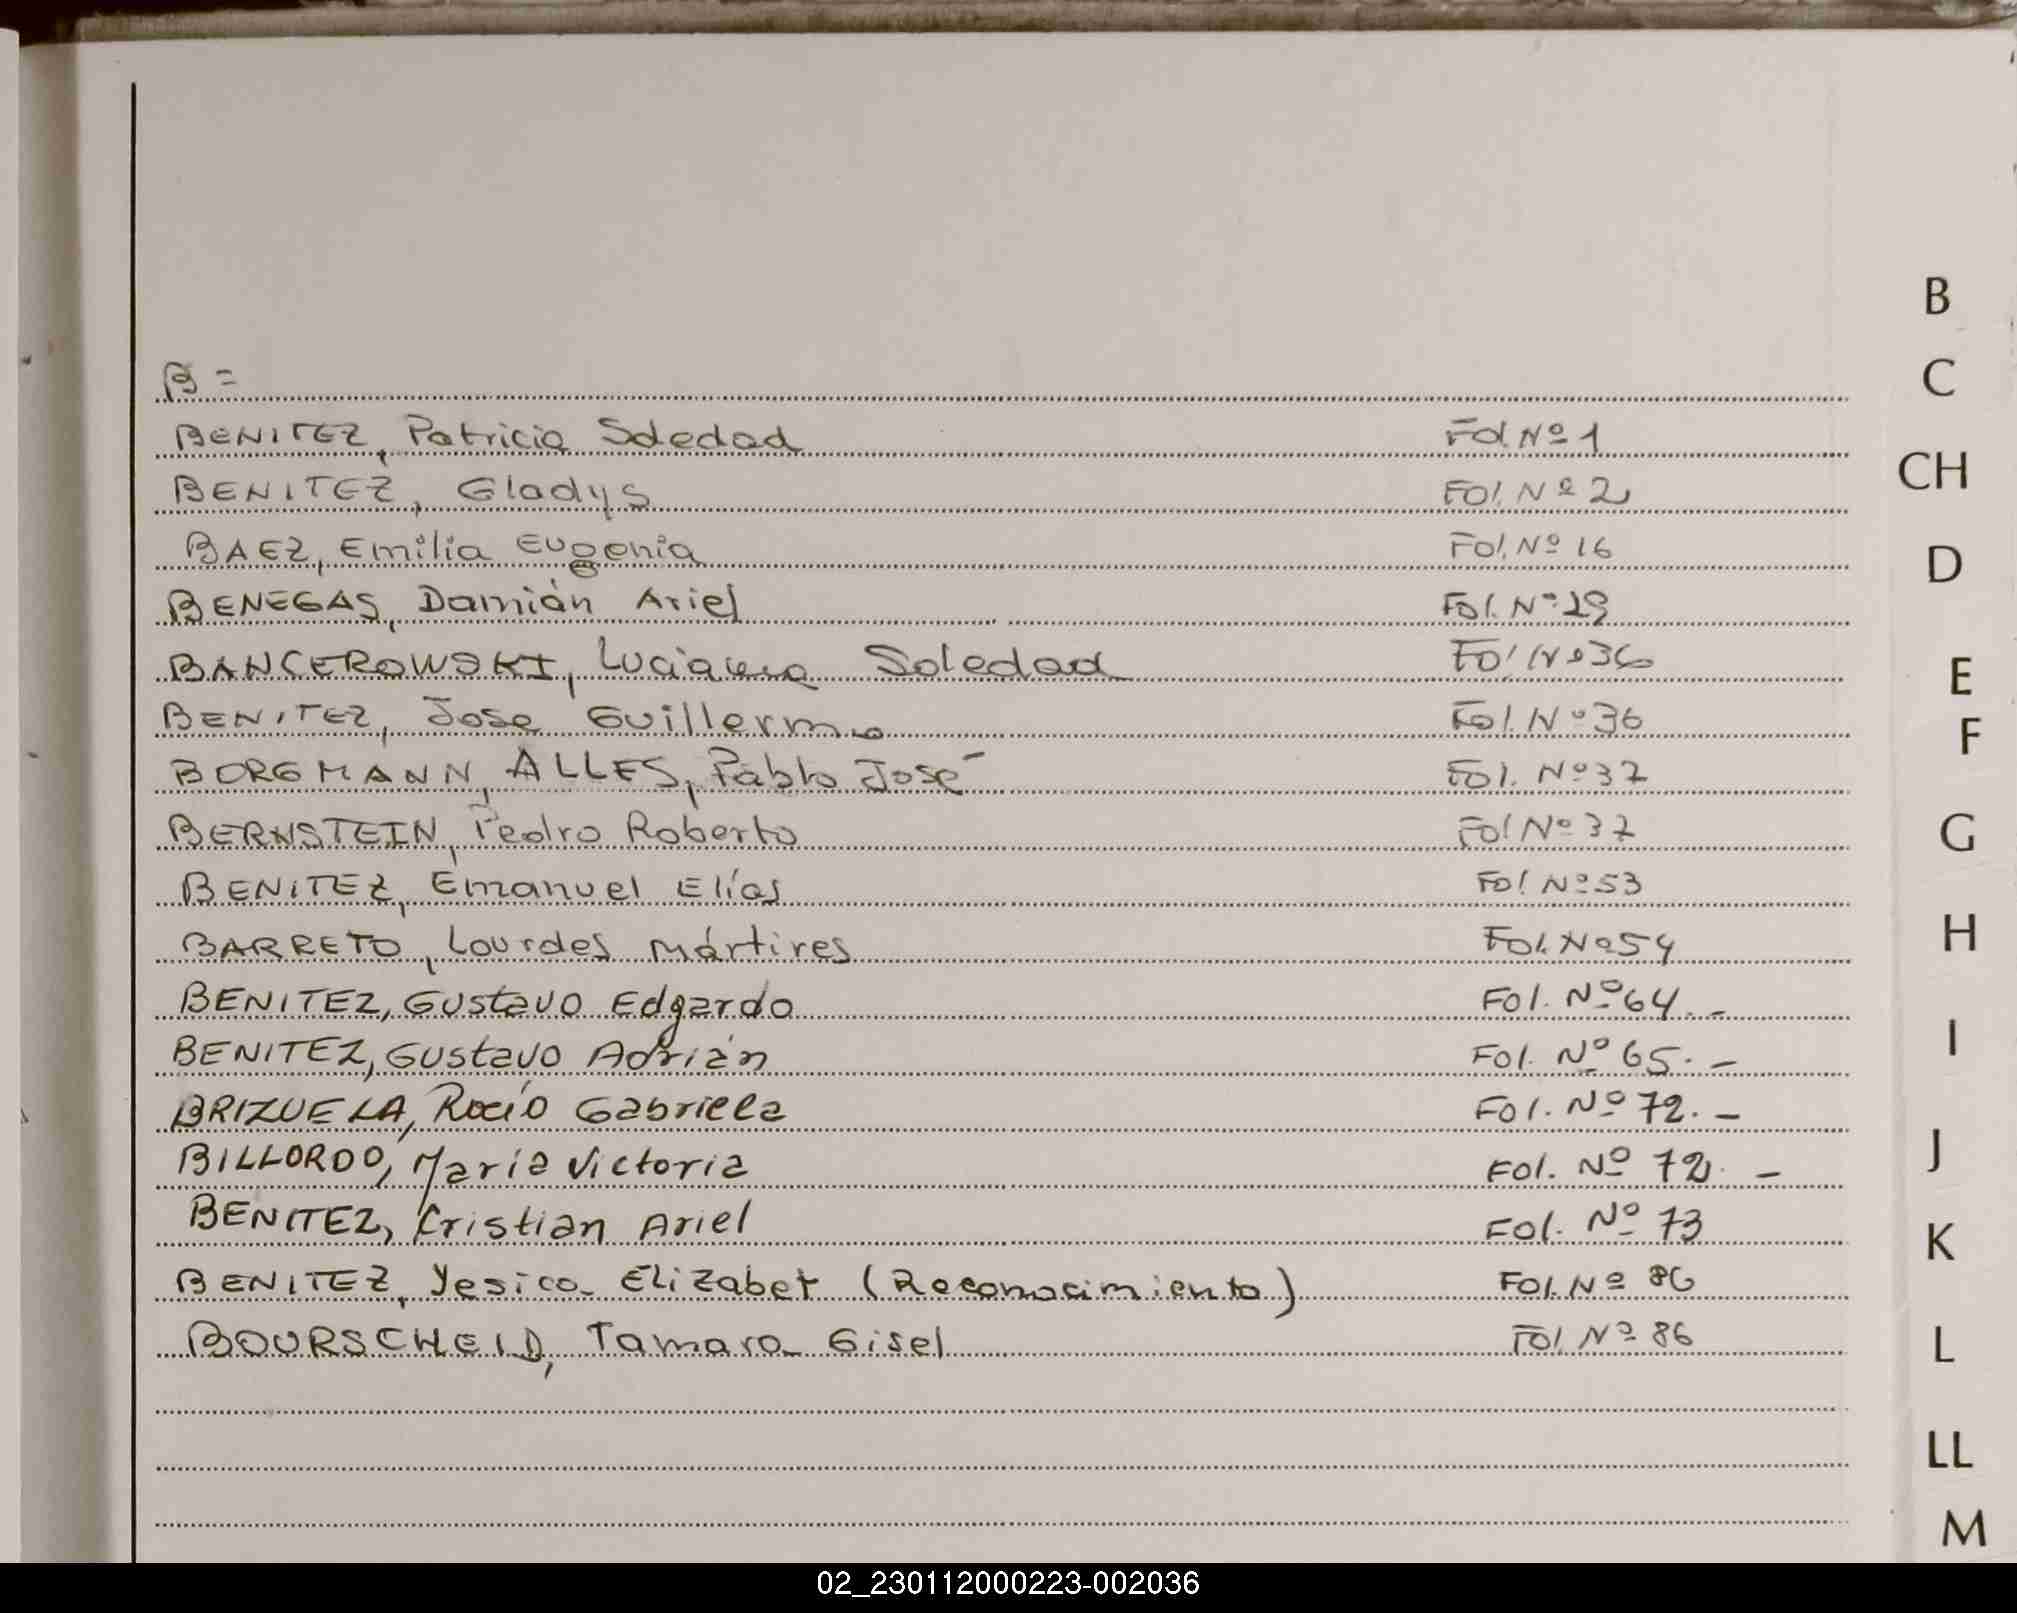 B
C
B =
BENITEZ, Patricia Soledad Fol. Nº 1
CH
BENITEZ, Gladys Fol. Nº 2
BAEZ, Emilia Eugenia Fol. Nº 16
D
BENEGAS, Damián Ariel Fol. Nº 29
BANCEROWSKI, Luciana Soledad Fol Nº 36
E
BENITEZ, Jose Guillermo Fol. Nº 36
F
BORGMANN, ALLES, Pablo José Fol. Nº 37
BERNSTEIN, Pedro Roberto Fol Nº 37
G
BENITEZ, Emanuel Elías Fol. Nº 53
BARRETO, Lourdes Mártires Fol. Nº 54
H
BENITEZ, Gustavo Edgardo Fol. Nº 64.-
BENITEZ, Gustavo Adrián Fol. Nº 65.-
I
BRIZUELA, Rocío Gabriela Fol. Nº 72.-
BILLORDO, María Victoria Fol. Nº 72.-
J
BENITEZ, Cristian Ariel Fol. Nº 73
K
BENITEZ, Yesica Elizabet (Reconocimiento) Fol. Nº 86
BOURSCHEID, Tamara Gisel Fol. Nº 86
L
LL
M
02_230112000223-002036